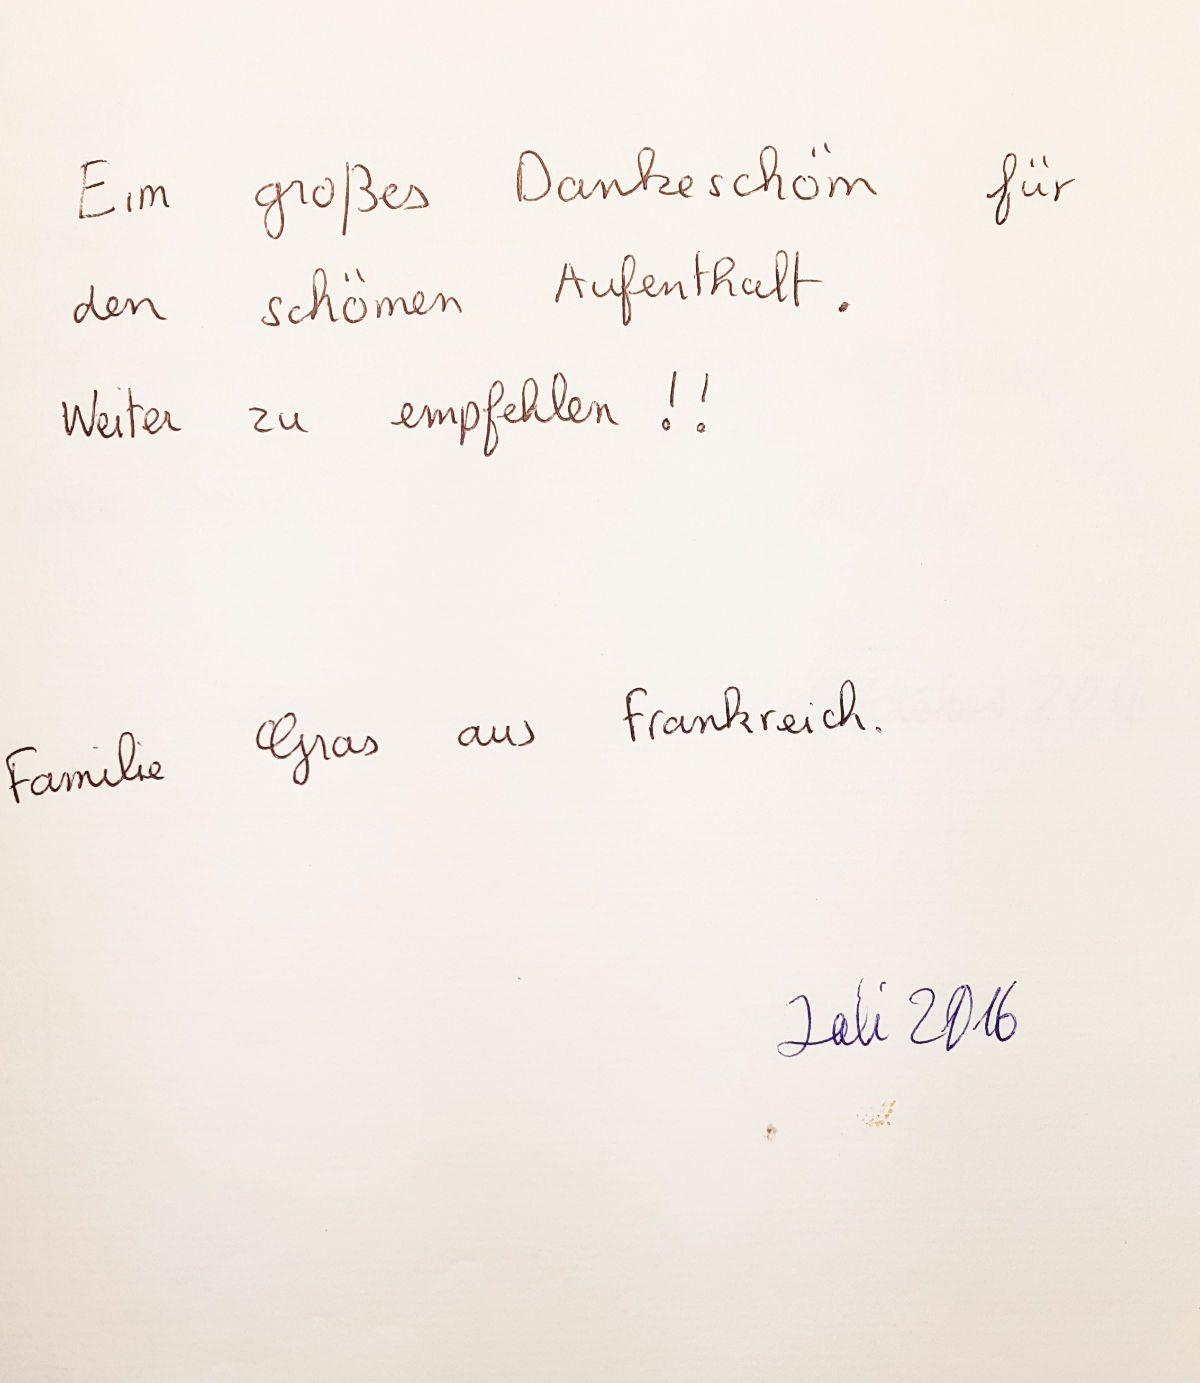 Ein großes Dankeschön für
den schönen Aufenthalt.
Weiter zu empfehlen !!
Familie Gras aus Frankreich.
Juli 2016